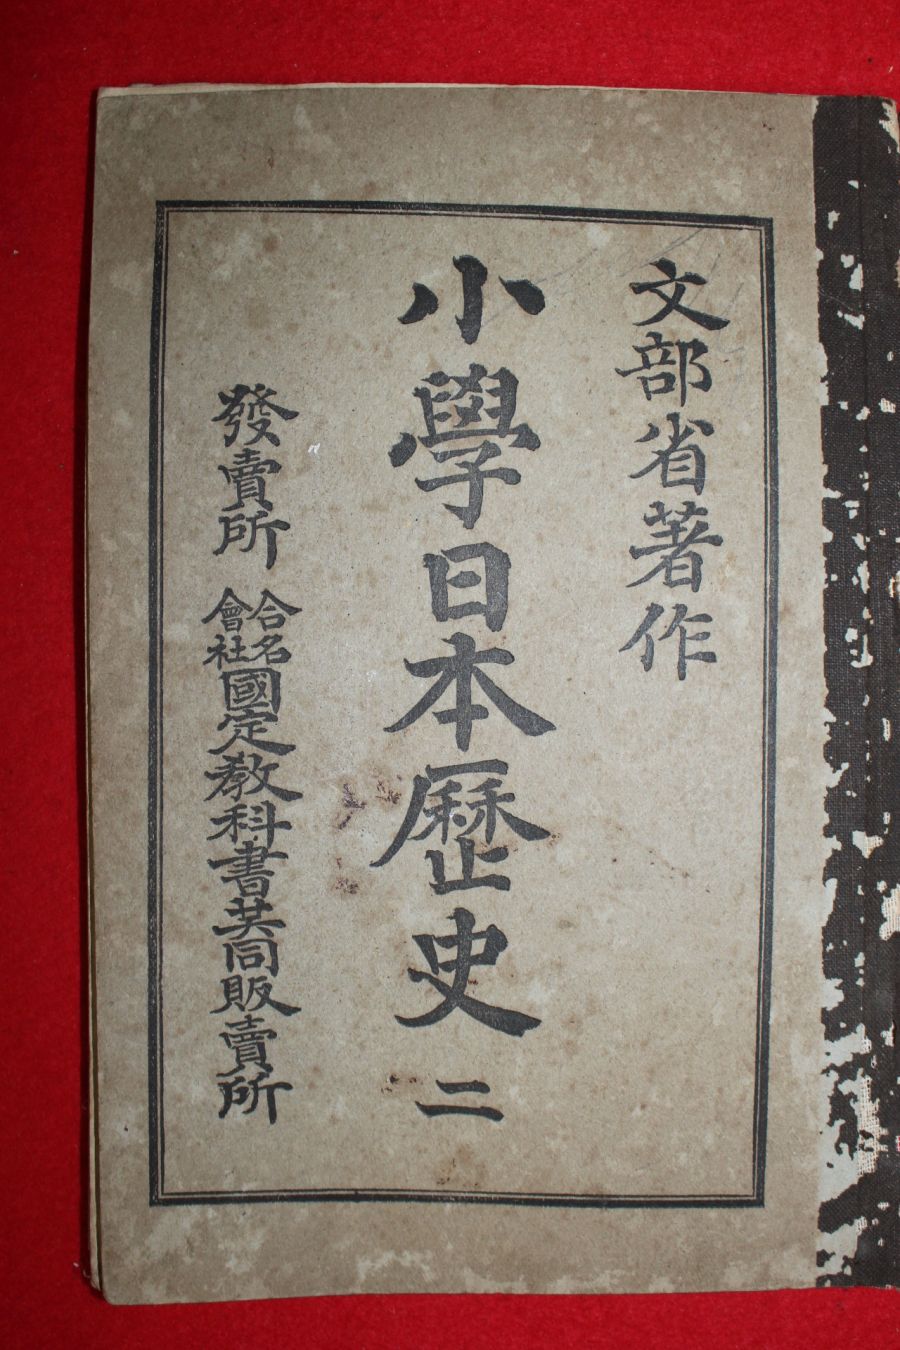 文部省著作
小學日本歷史 二
發賣所 合名會社國定教科書共同販賣所